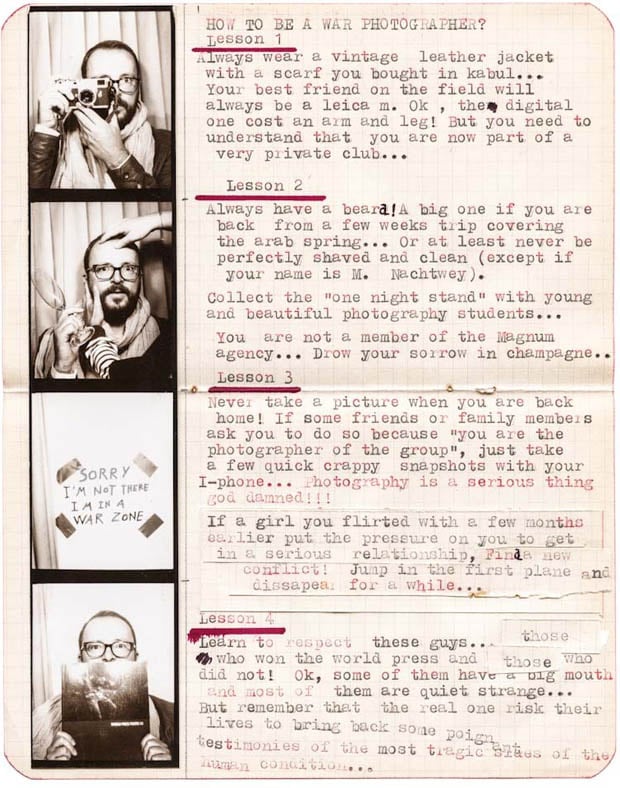 HOW TO BE A WAR PHOTOGRAPHER?
Lesson 1
Always wear a vintage leather jacket
with a scarf you bought in kabul...
Your best friend on the field will
always be a leica m. Ok , the digital
one cost an arm and leg! But you need to
understand that you are now part of a
very private club...
Lesson 2
Always have a beard!A big one if you are
back from a few weeks trip covering
the arab spring... Or at least never be
perfectly shaved and clean (except if
your name is M. Nachtwey).
Collect the "one night stand" with young
and beautiful photography students...
You are not a member of the Magnum
agency... Drow your sorrow in champagne..
Lesson 3
Never take a picture when you are back
home! If some friends or family members
ask you to do so because "you are the
photographer of the group", just take
a few quick crappy snapshots with your
I-phone... Photography is a serious thing
god damned!!!
If a girl you flirted with a few months
earlier put the pressure on you to get
in a serious relationship, Find a new
conflict! Jump in the first plane and
dissapear for a while...
Lesson 4
Learn to respect these guys... those
who won the world press and those who
did not! Ok, some of them have a big mouth
and most of them are quiet strange...
But remember that the real one risk their
lives to bring back some poignant
testimonies of the most tragic sides of the
human condition...
SORRY
I'M NOT THERE
I'M IN A
WAR ZONE